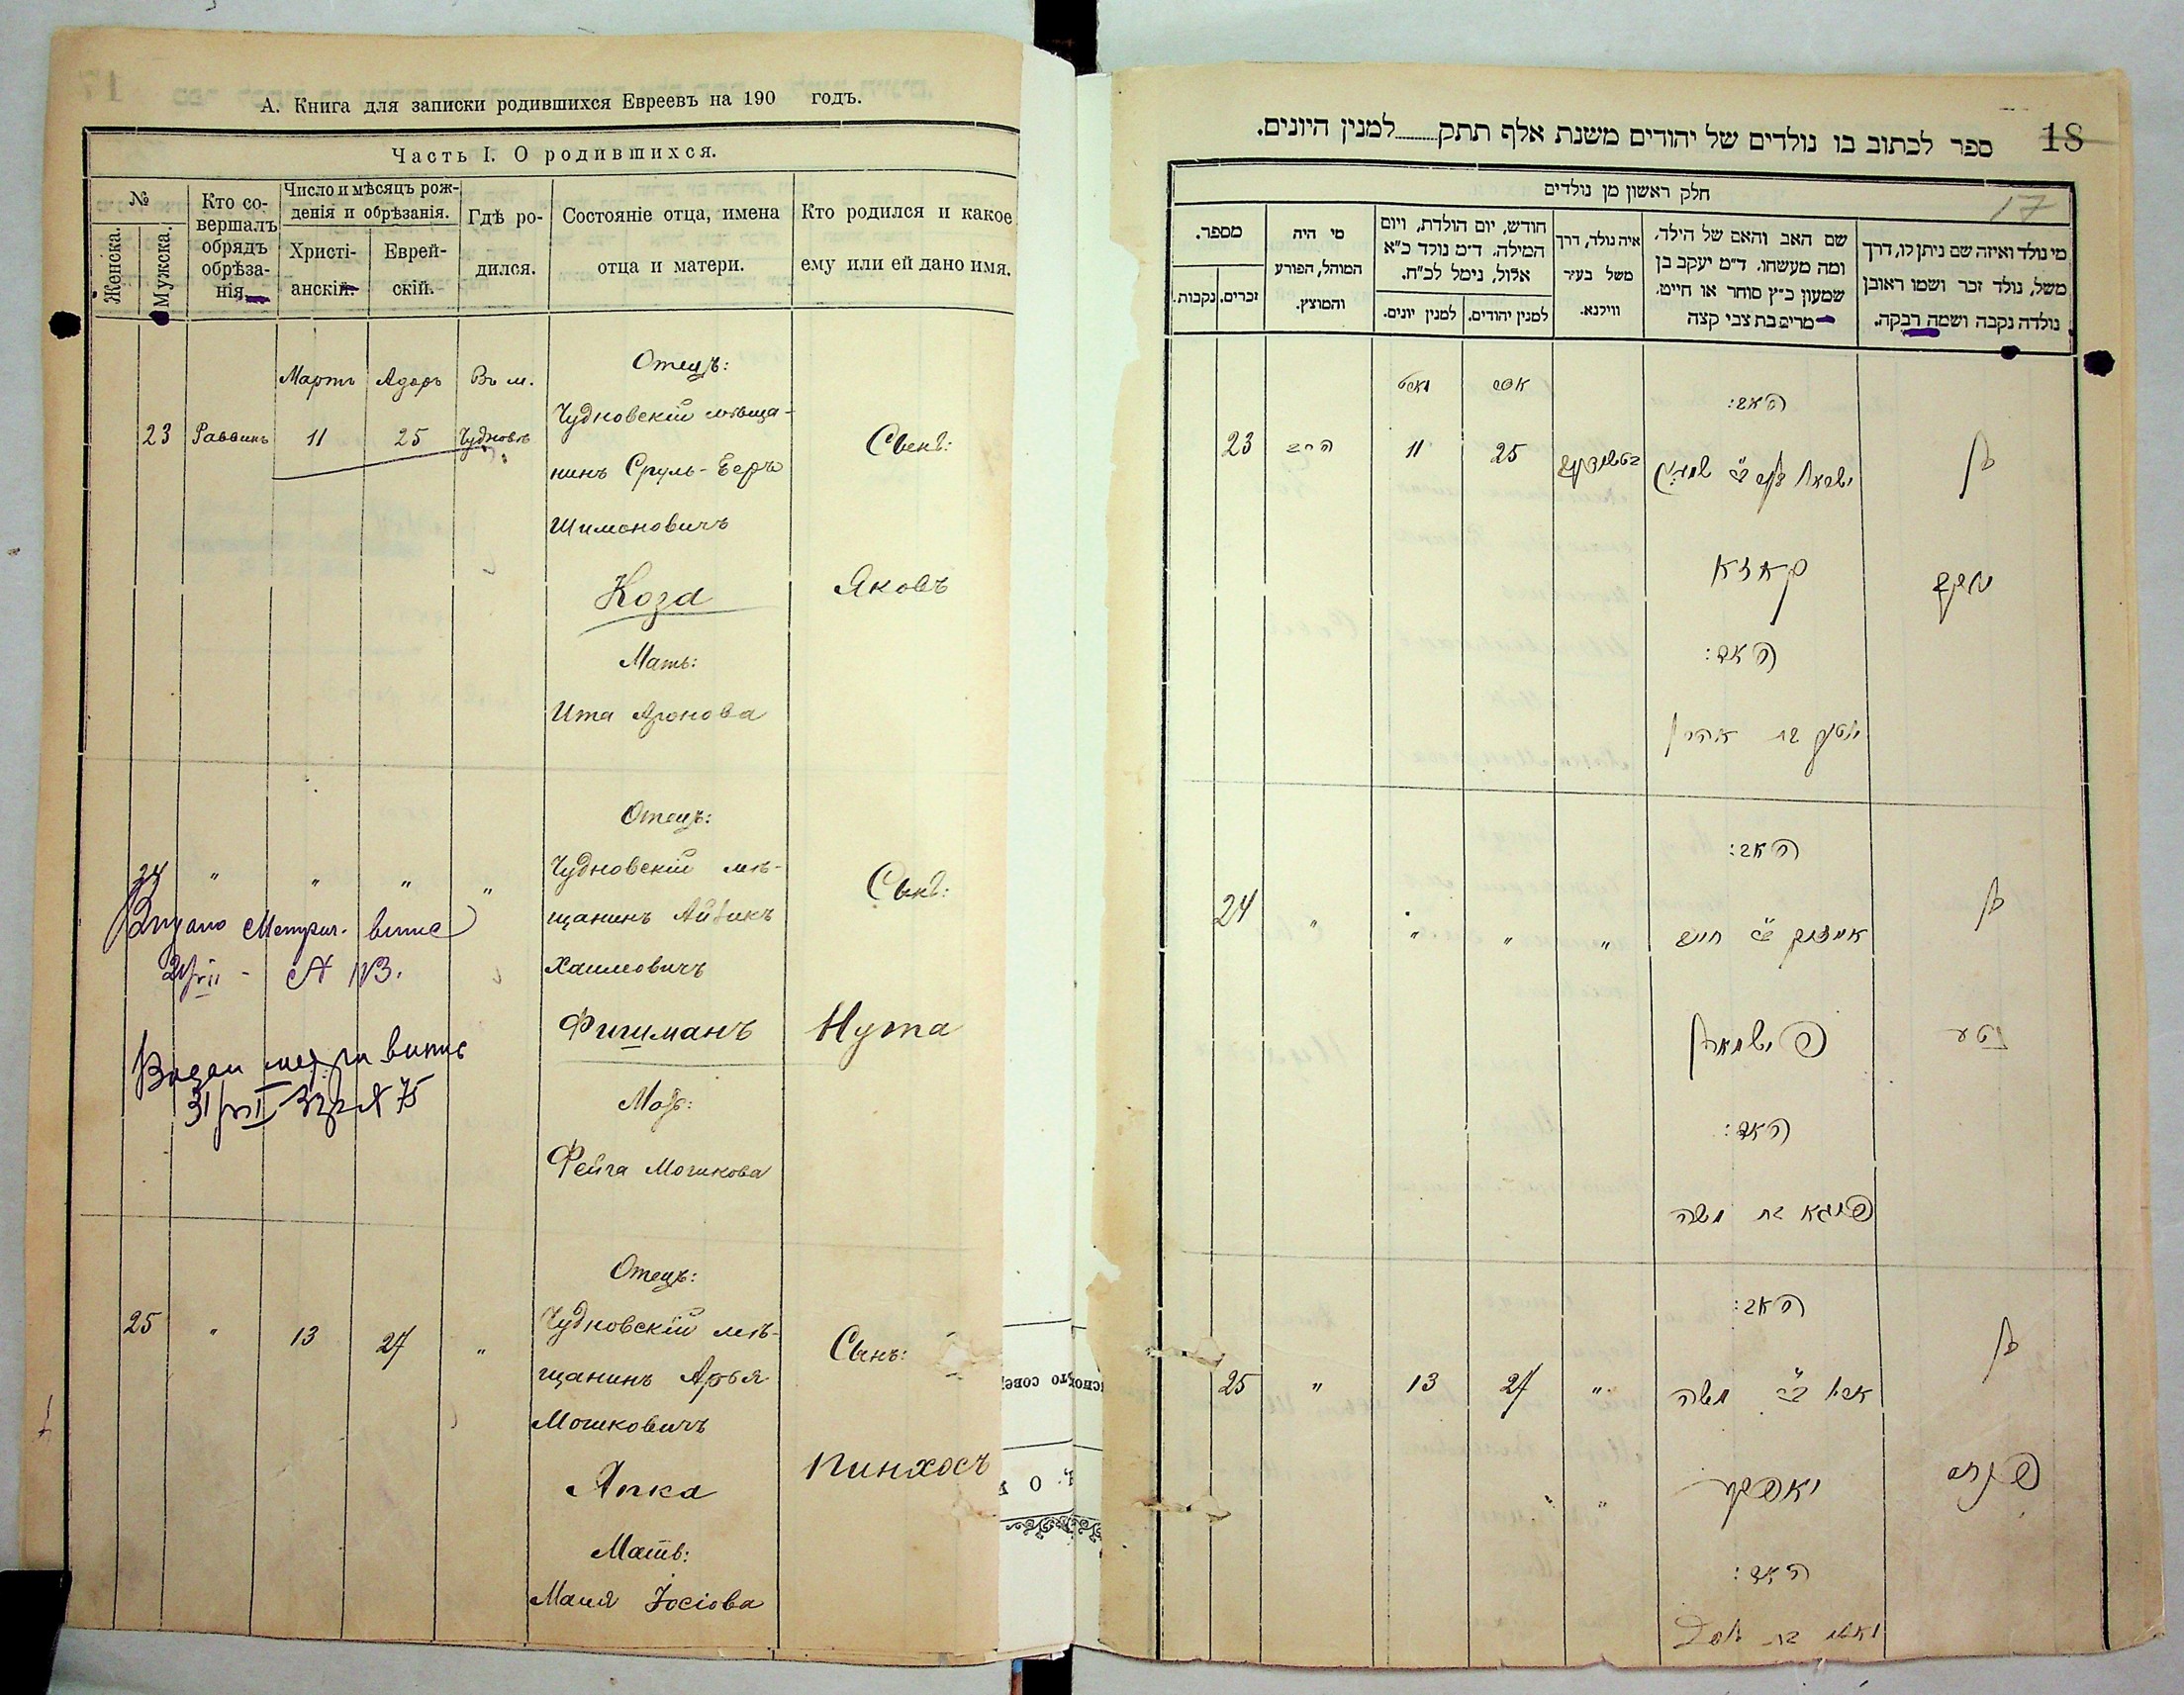 А. Книга для записки родившихся Евреевъ на 190 годъ.
Часть I. О родившихся.
№
Женска.
Мужска.
Кто со-
вершалъ
обрядъ
обрѣза-
нія.
Число и мѣсяцъ рож-
денія и обрѣзанія.
Христі-
анскій.
Еврей-
скій.
Гдѣ ро-
дился.
Состояніе отца, имена
отца и матери.
Кто родился и какое
ему или ей дано имя.
Мартъ Адаръ Въ м.
23 Раввинъ 11 25 Чудновѣ
Отецъ:
Чудновскій мѣща-
нинъ Сруль-Беръ
Шимоновичъ
Коза
Мать:
Ита Аронова
Сынъ:
Яковъ
24 " " " "
Видано Метрич. випис
A N3.
Отецъ:
Чудновскій мѣ-
щанинъ Айзикъ
Хаимовичъ
Фишманъ
Мать:
Фейга Мошкова
Сынъ:
Нута
25 " 13 27 "
Отецъ:
Чудновскій мѣ-
щанинъ Арья
Мошковичъ
Япка
Мать:
Маня Іосіова
Сынъ:
Пинхосъ
18
ספר לכתוב בו נולדים של יהודים משנת אלף תתק למנין היונים.
17
חלק ראשון מן נולדים
מי נולד ואיזה שם ניתן לו, דרך
משל, נולד זכר ושמו ראובן
נולדה נקבה ושמה רבקה.
שם האב והאם של הילד,
ומה מעשהו. ד״מ יעקב בן
שמעון כ״ץ סוחר או חייט.
מרים בת צבי קצה
איה נולד, דרך
משל בעיר
ווילנא.
חודש, יום הולדת, ויום
המילה. ד״מ נולד כ״א
אלול, נימל לכ״ח.
למנין יהודים.
למנין יונים.
מי היה
המוהל, הפורע
והמוצץ.
מספר.
זכרים.
נקבות.
אדר
מארט
23 הרב 11 25
האב:
קאזא
האם:
איטא בת אהרן
בן
יעקב
24 " " " "
האב:
אייזיק ב״ר חיים
פישמאן
האם:
פייגא בת משה
בן
נטע
25 " 13 27 "
האב:
ארי׳ ב״ר משה
יאפקע
האם:
מאני בת יוסף
בן
פנחס